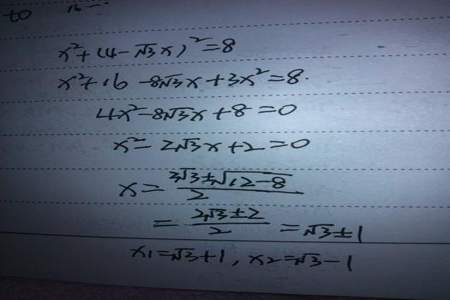 to
x²+(4-√3x)²=8
x²+16-8√3x+3x²=8.
4x²-8√3x+8=0
x²-2√3x+2=0
x=(2√3±√12-8)/2
=(2√3±2)/2=√3±1
x1=√3+1, x2=√3-1